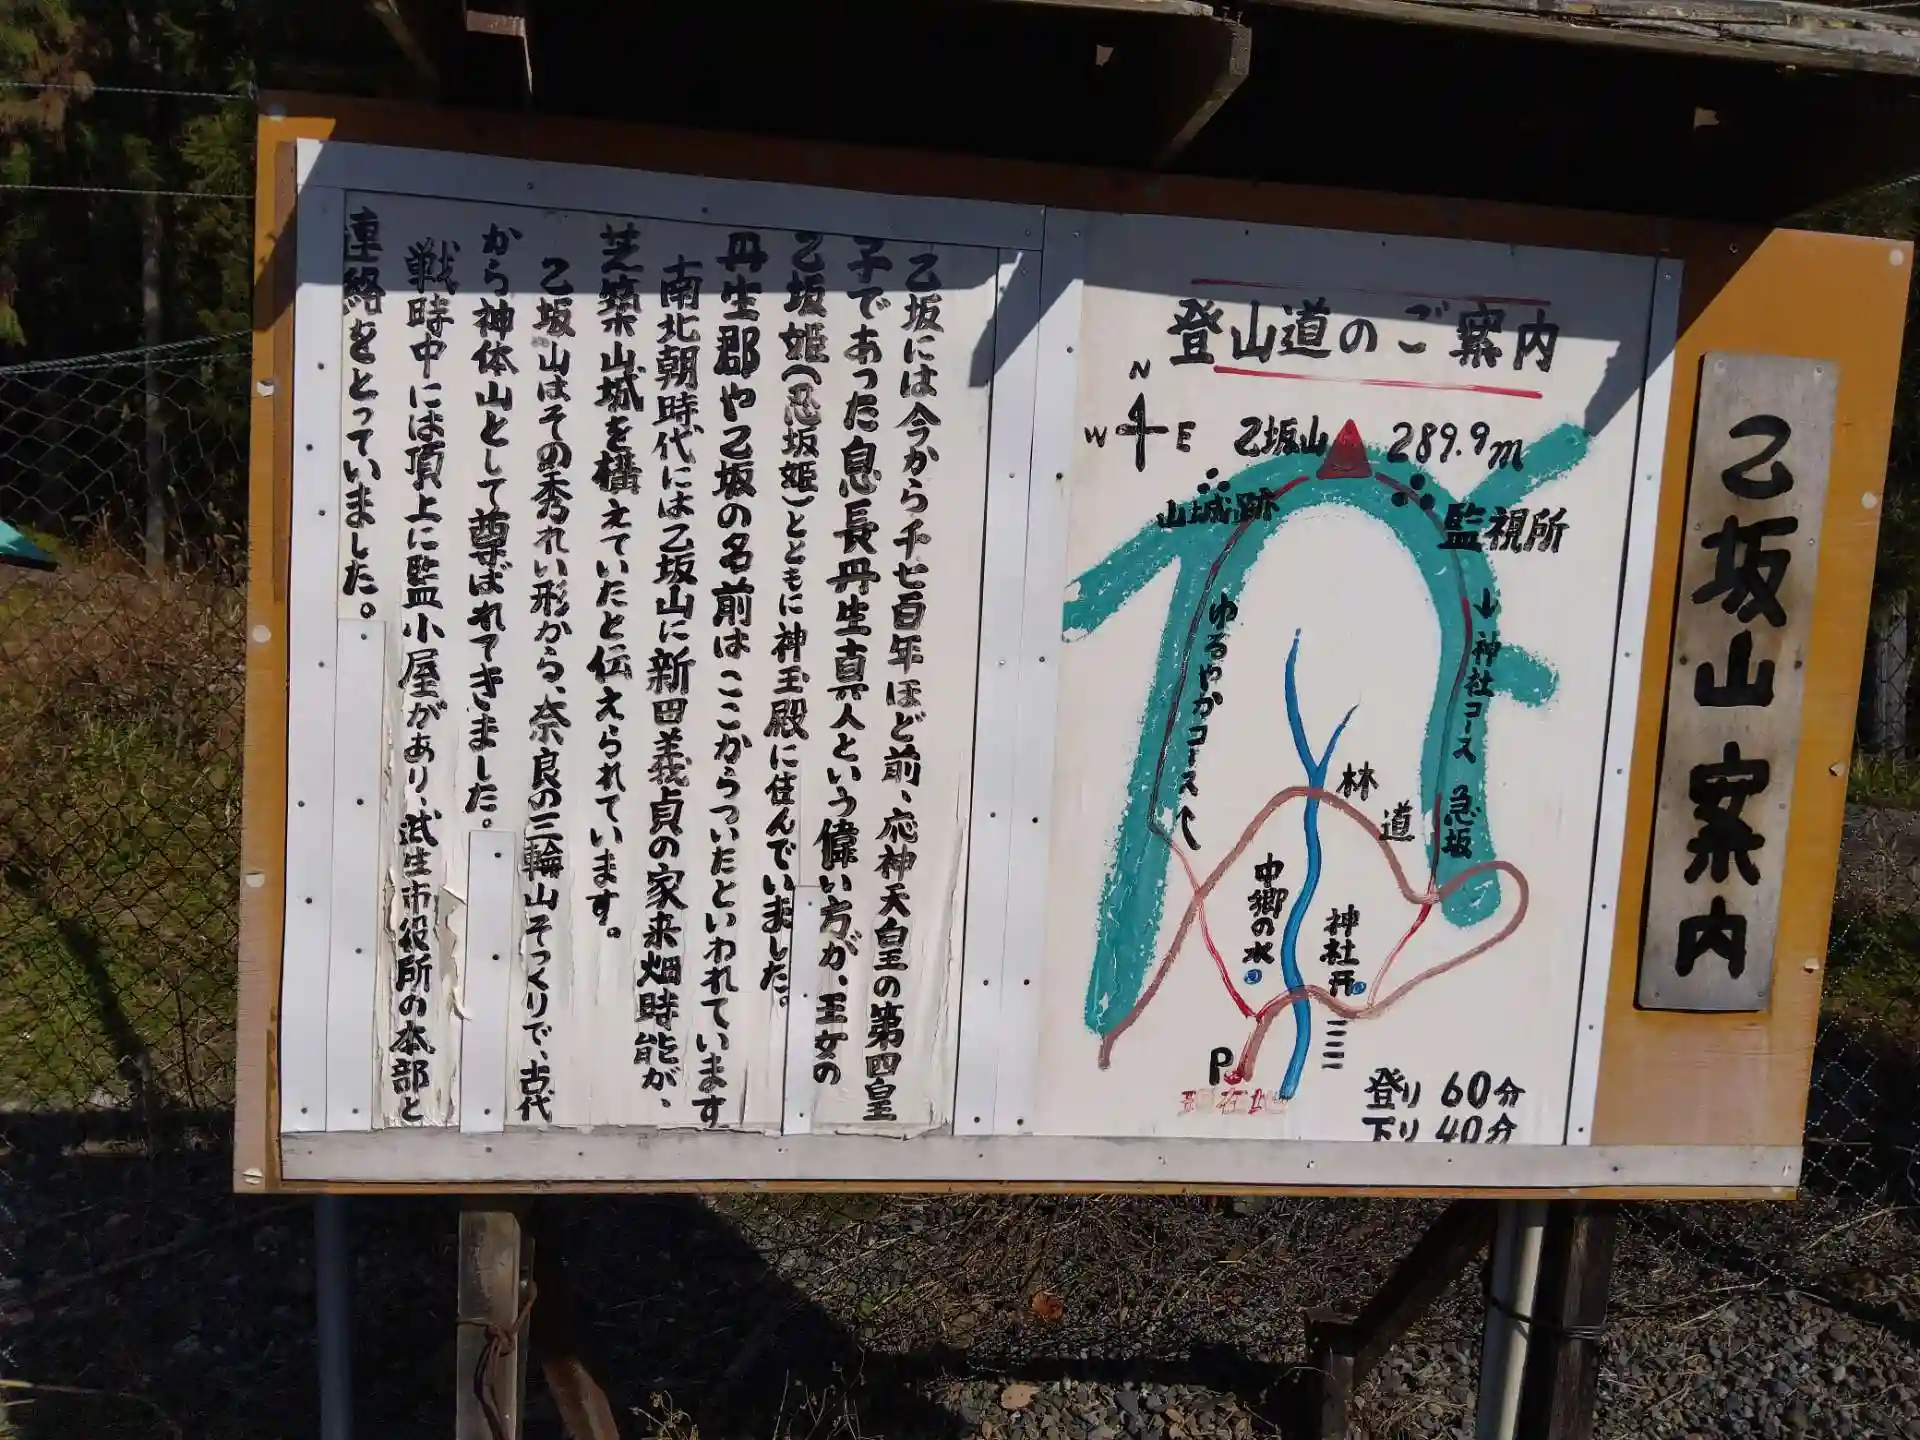 乙坂山案内
登山道のご案内
N
W
E
乙坂山
289.9m
山城跡
監視所
ゆるやかコース
↓神社コース
急坂
林道
中郷の水
神社
P
現在地
登り 60分
下り 40分
乙坂には今から千七百年ほど前、応神天皇の第四皇
子であった息長丹生真人という偉い方が、王女の
乙坂姫(忍坂姫)とともに神玉殿に住んでいました。
丹生郡や乙坂の名前はここからついたといわれています
南北朝時代には乙坂山に新田義貞の家来畑時能が、
芝築山城を構えていたと伝えられています。
乙坂山はその秀れい形から、奈良の三輪山そっくりで、古代
から神体山として尊ばれてきました。
戦時中には頂上に監小屋があり、武生市役所の本部と
連絡をとっていました。